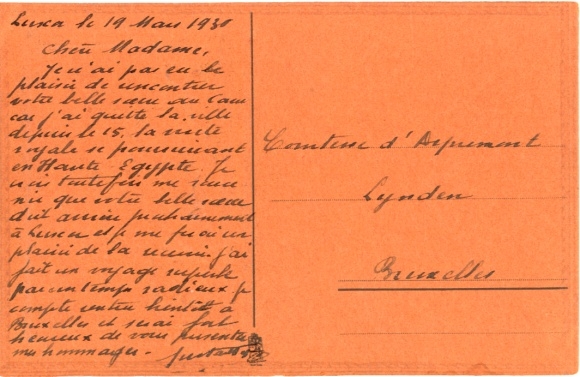 Luxor le 19 Mars 1930
Chère Madame,
Je n'ai pas eu le
plaisir de rencontrer
votre belle sœur au Caire
car j'ai quitté la ville
depuis le 15, la visite
royale se poursuivant
en Haute Egypte. Je
crois toutefois me souve
nir que votre belle sœur
doit arriver prochainement
à Luxor et je me ferai un
plaisir de la revoir. j'ai
fait un voyage superbe
par un temps radieux. je
compte rentrer bientôt à
Bruxelles et serai fort
heureux de vous présenter
mes hommages.
Comtesse d'Aspremont
Lynden
Bruxelles